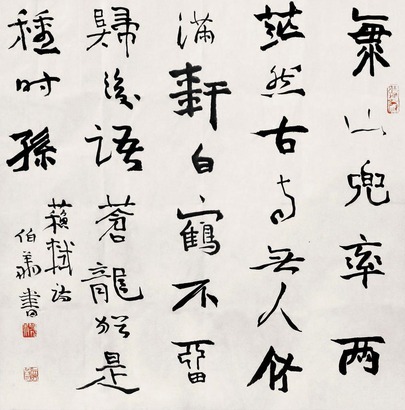 山兜率兩
茫然古寺無人竹
滿軒白鶴不留
歸後語蒼龍猶是
種时孫
蘇軾詩
伯書